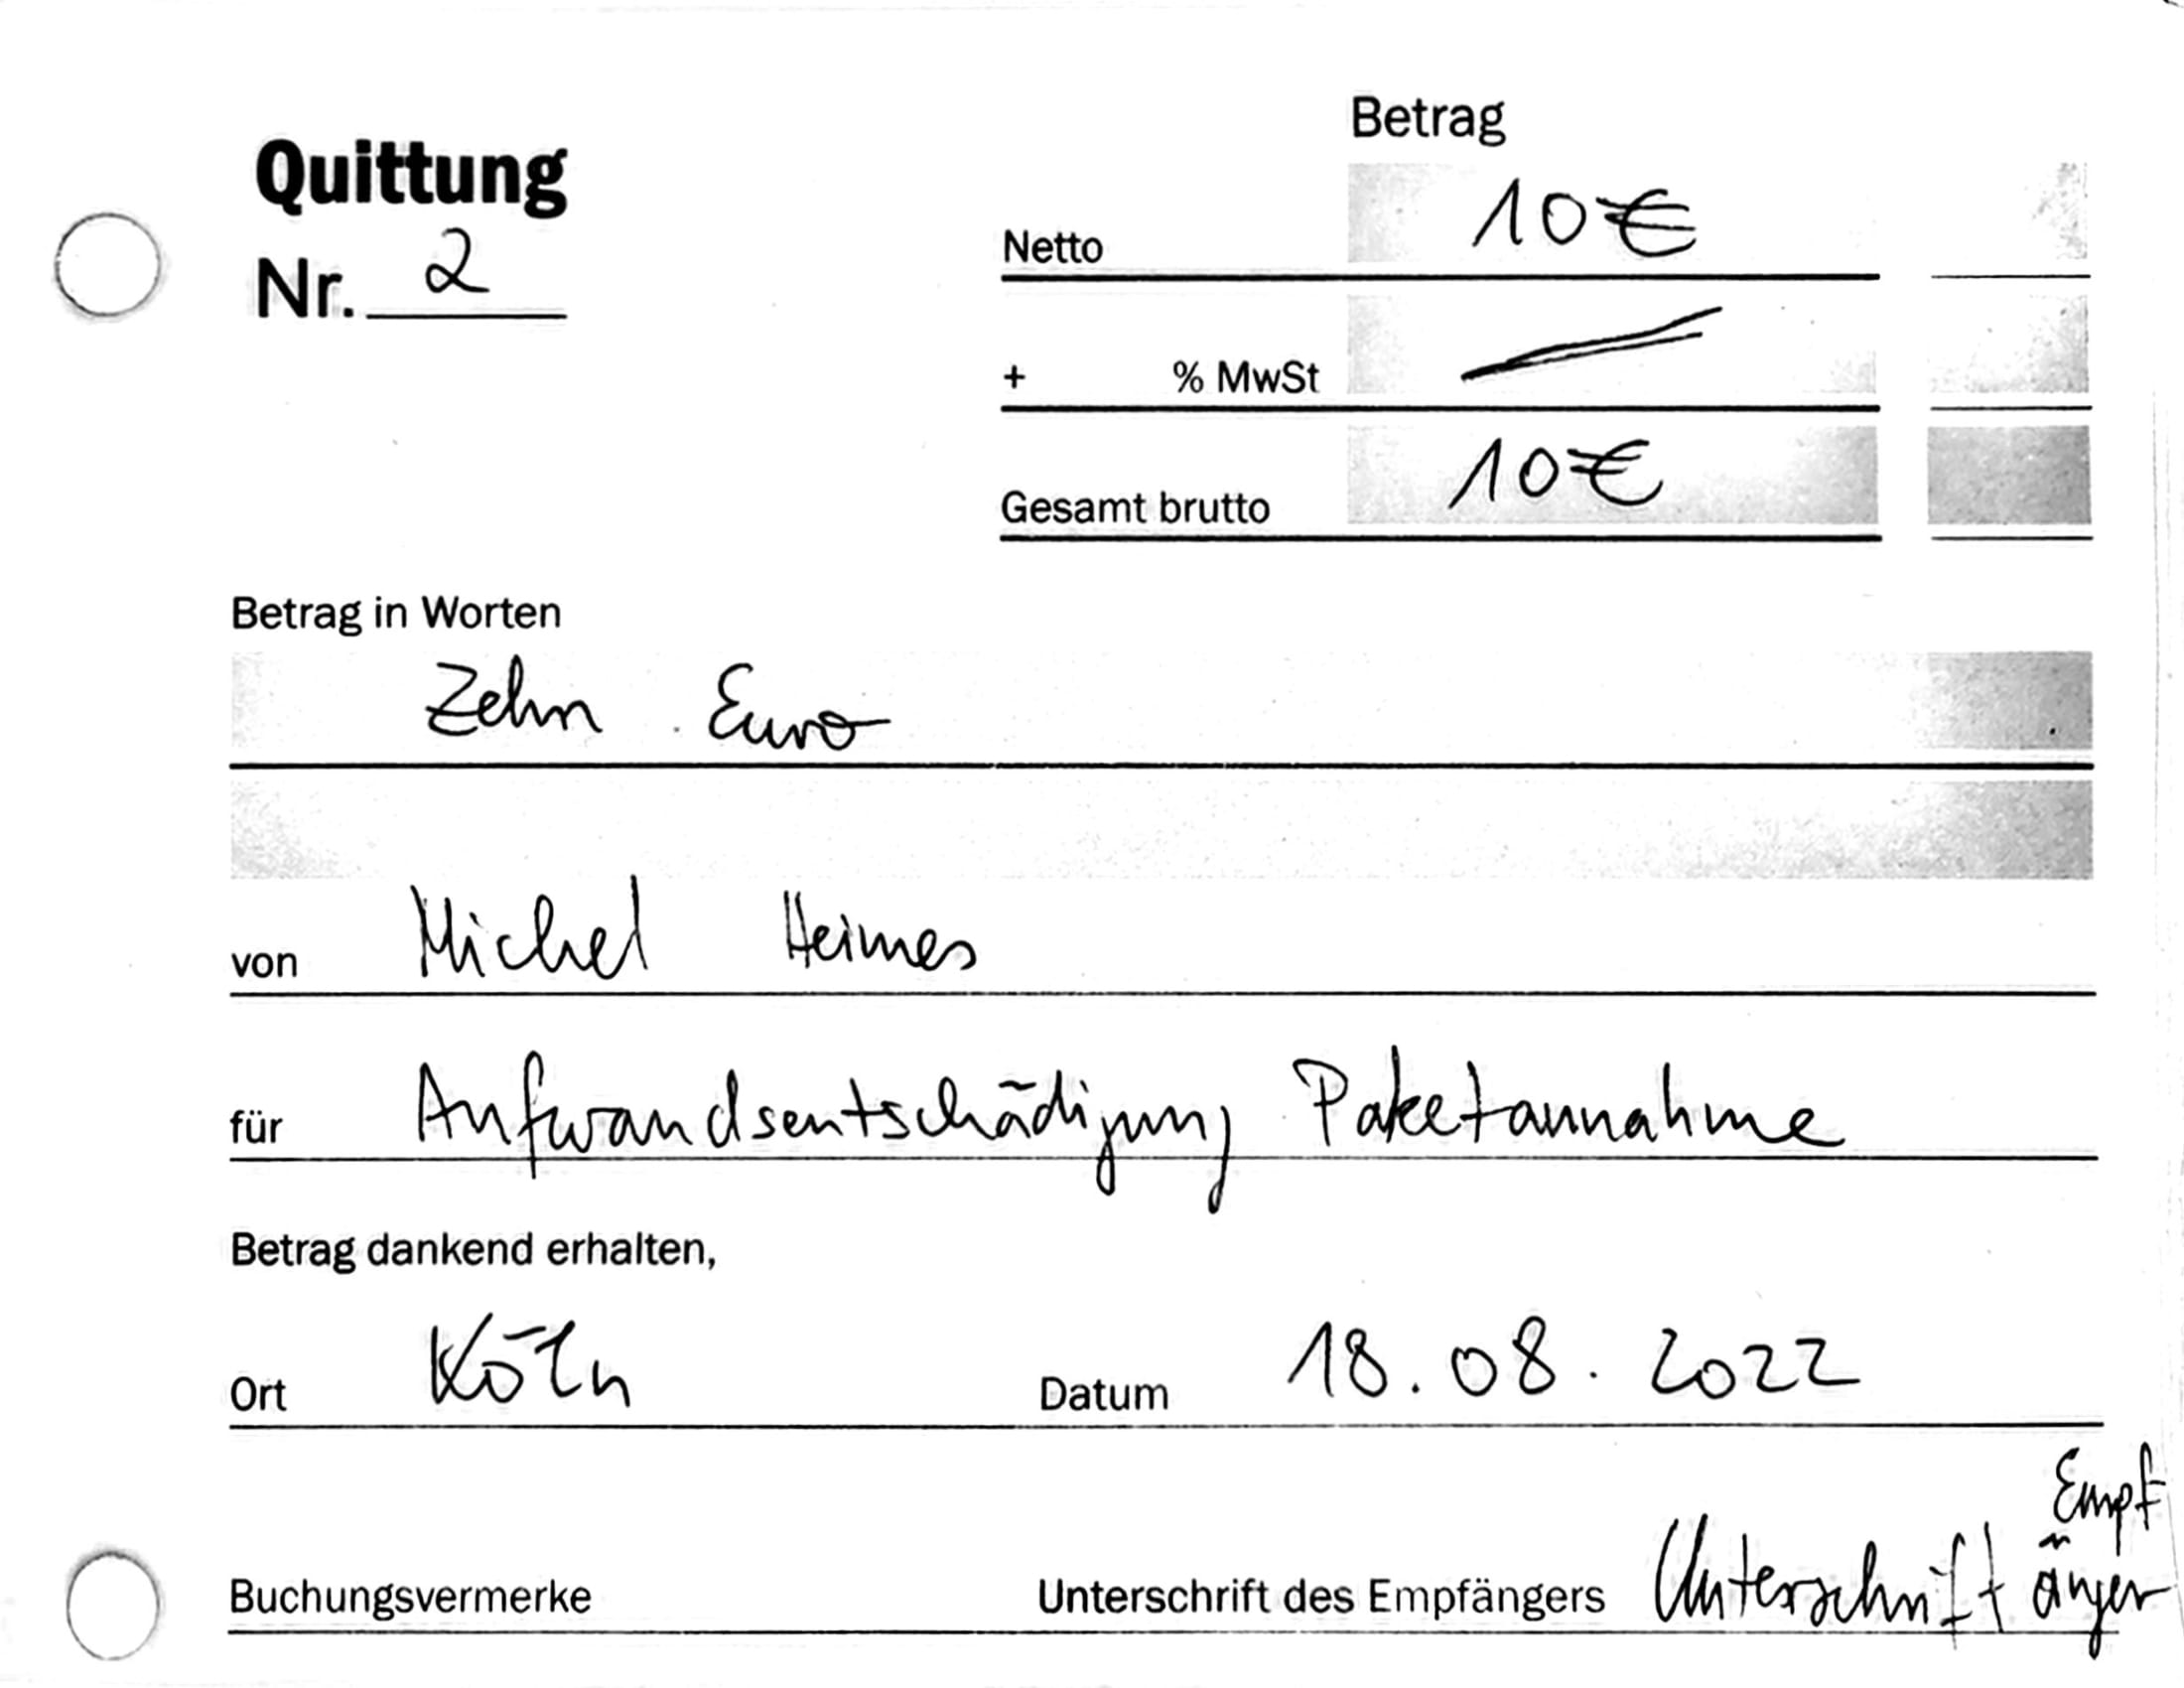 Betrag
Quittung
Nr. 2
Netto 10€
+ % MwSt
Gesamt brutto 10€
Betrag in Worten
Zehn Euro
von Michel Heimes
für Aufwandsentschädigung Paketannahme
Betrag dankend erhalten,
Ort Köln Datum 18.08.2022
Buchungsvermerke Unterschrift des Empfängers Unterschrift Empf
änger